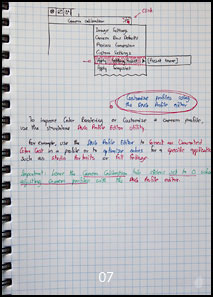 Click
Camera Calibration
Image Settings
Camera Raw Defaults
Previous Conversion
Custom Settings
Apply Preset
[Preset Name]
Apply Snapshot
Customise profiles using
the DNG Profile editor
To improve Color Rendering or Customise a camera profile,
use the standalone DNG Profile Editor Utility.
For example, use the DNG Profile Editor to correct an Unwanted
Color Cast in a profile or to optimise colors for a specific application
such as studio Portraits or Fall Foliage
Important: Leave the Camera Calibration Tab sliders set to 0 when
adjusting camera profiles with the DNG Profile editor.
07